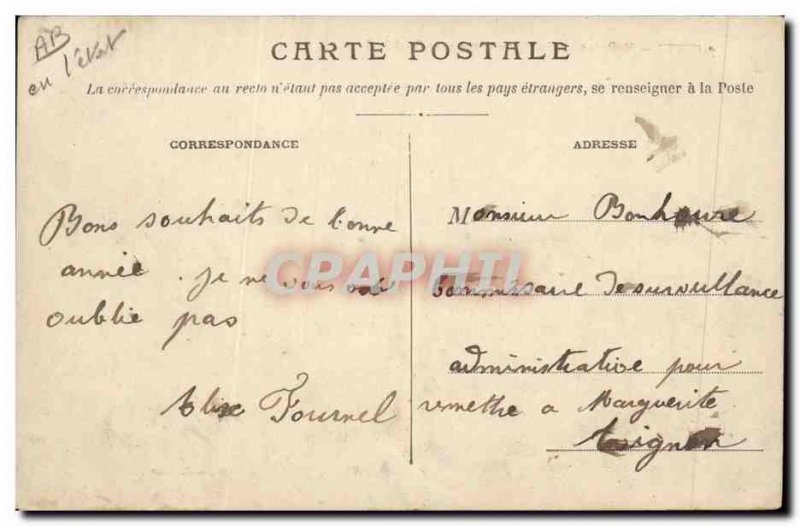 AB
en l'état
CARTE POSTALE
La correspondance au recto n'étant pas acceptée par tous les pays étrangers, se renseigner à la Poste
CORRESPONDANCE
Bons souhaits de bonne
année. je ne vous
oublie pas
Fournel
ADRESSE
Monsieur Bonheure
Commissaire de surveillance
administrative pour
remettre a Marguerite
Avignon
CPAPHIL